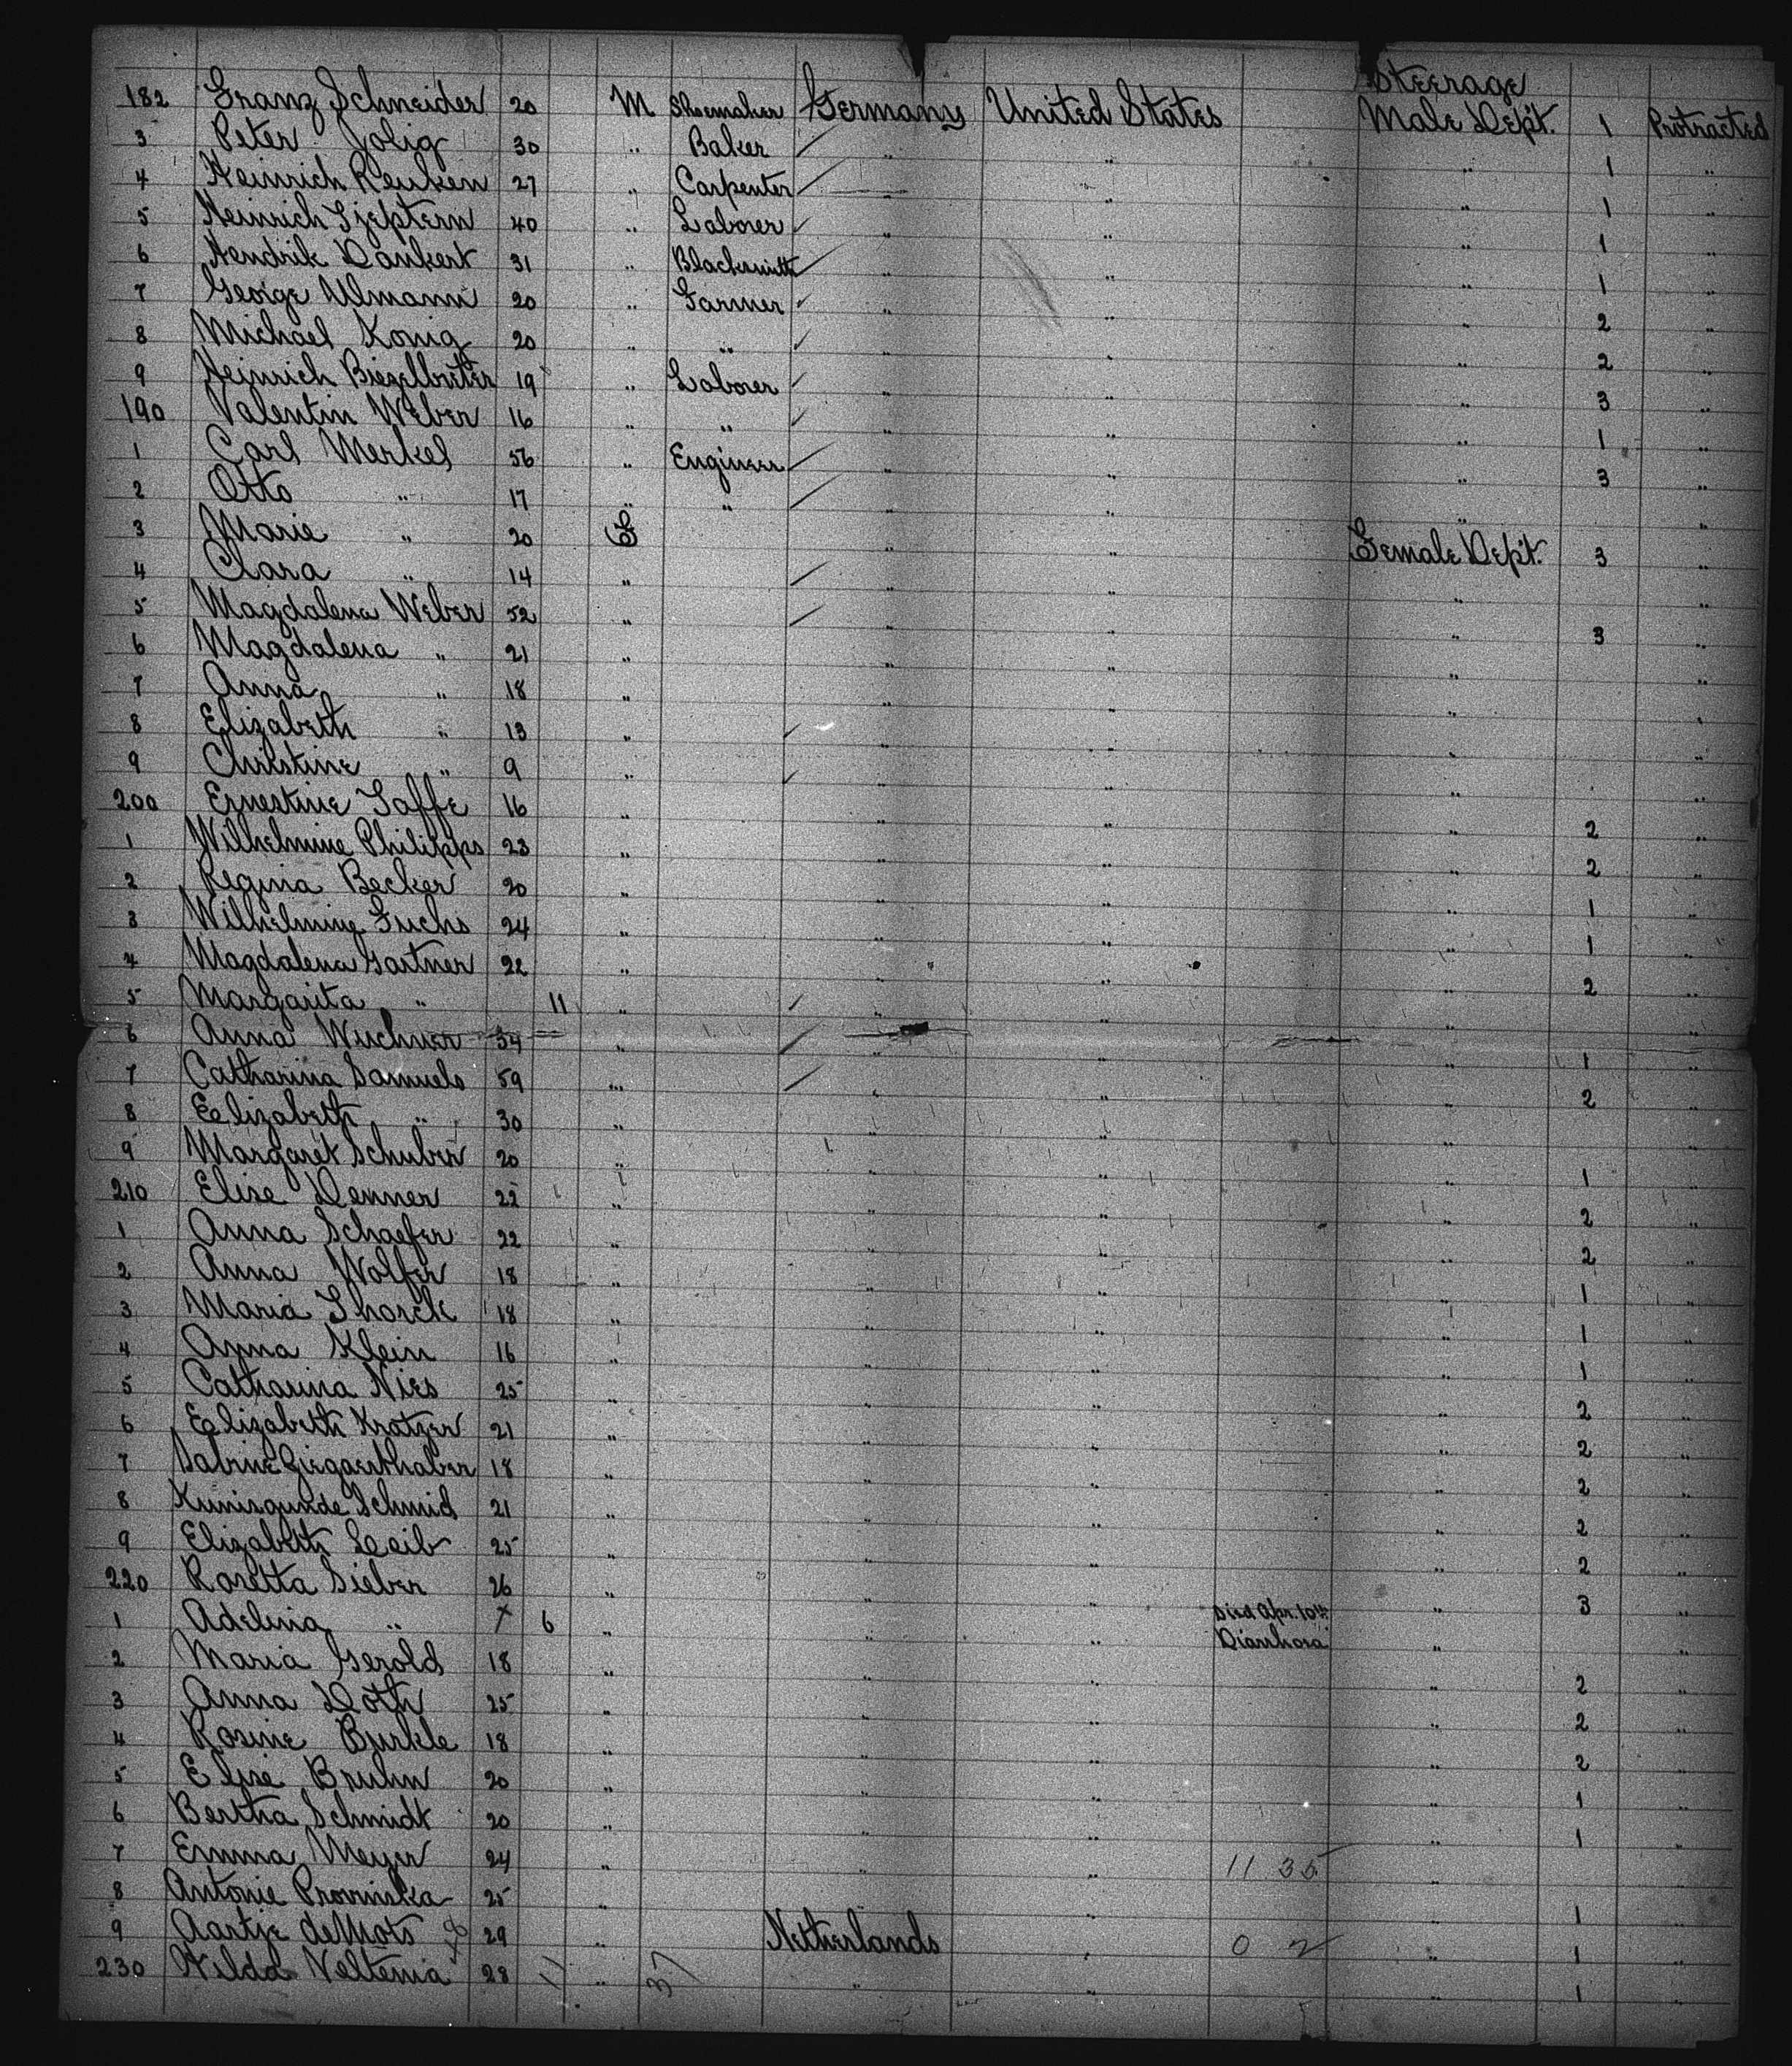 Steerage
182 Franz Schneider 20 M Shoemaker Germany United States Male Dept. 1 Protracted
3 Peter Jolig 30 " Baker " " " 1 "
4 Heinrich Reuken 27 " Carpenter " " " 1 "
5 Heinrich 40 " Laborer " " " 1 "
6 Hendrik Dankert 31 " Blacksmith " " " 1 "
7 George Ulmann 20 " Farmer " " " 2 "
8 Michael Konig 20 " " " " " 2 "
9 Heinrich 19 " Laborer " " " 3 "
190 Valentin Weber 16 " " " " " 1 "
1 Carl Merkel 56 " Engineer " " " 3 "
2 Otto " 17 " " " " " "
3 Marie " 20 F " " Female Dept. 3 "
4 Clara " 14 " " " " "
5 Magdalena Weber 52 " " " " 3 "
6 Magdalena " 21 " " " " "
7 Anna " 18 " " " " "
8 Elizabeth " 13 " " " " "
9 Christine " 9 " " " " "
200 Ernestine Jaffe 16 " " " " 2 "
1 Wilhelmine Philipps 23 " " " " 2 "
2 Regina Becker 20 " " " " 1 "
3 Wilhelmine Fuchs 24 " " " " 1 "
4 Magdalena Gartner 22 " " " " 2 "
5 Margarita " 11 " " " " "
6 Anna Wuchner 34 " " " " 1 "
7 Catharina Samuels 59 " " " " 2 "
8 Elizabeth " 30 " " " " "
9 Margaret Schuber 20 " " " " 1 "
210 Elise Denner 22 " " " " 2 "
1 Anna Schaefer 22 " " " " 2 "
2 Anna Wolfer 18 " " " " 1 "
3 Maria Shorck 18 " " " " 1 "
4 Anna Klein 16 " " " " 1 "
5 Catharina Nies 25 " " " " 2 "
6 Elizabeth Kratzer 21 " " " " 2 "
7 Sabine 18 " " " " 2 "
8 Kunisgunde Schmid 21 " " " " 2 "
9 Elizabeth Leib 25 " " " " 2 "
220 Rosetta Sieber 26 " " " " 3 "
1 Adelina " + 6 " " " Died Apr. 10th Diarrhoea " "
2 Maria Gerold 18 " " " " 2 "
3 Anna Doth 25 " " " " 2 "
4 Rosine Burkle 18 " " " " 2 "
5 Elise Bruhn 20 " " " " 1 "
6 Bertha Schmidt 20 " " " " 1 "
7 Emma Meyer 24 " " " 11 35 " "
8 Antonie Provinska 25 " " " 1 "
9 Aartje deMots 29 " Netherlands " 0 2 " 1 "
230 Hilda Veltema 28 " " " 1 "